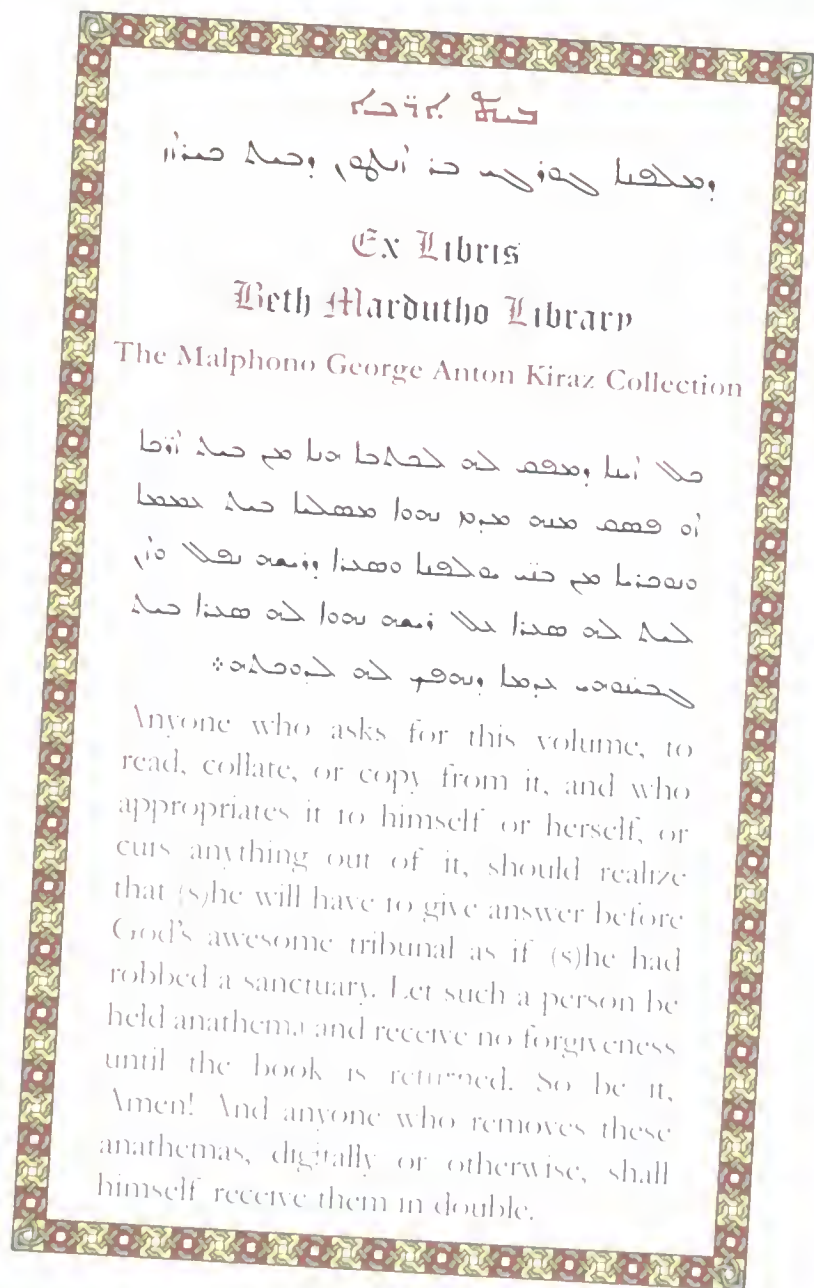 ܒܝܬ ܐܪ̈ܟܐ
ܕܡܠܦܢܐ ܓܘܪܓܝ ܒܪ ܐܢܛܘܢ ܕܒܝܬ ܟܝܪܐܙ
Ex Libris
Beth Mardutho Library
The Malphono George Anton Kiraz Collection
ܟܠ ܐܝܢܐ ܕܡܦܩ ܠܗ ܠܟܬܒܐ ܗܢܐ ܡܢ ܒܝܬ ܐܪ̈ܟܐ
ܐܘ ܦܣܩ ܡܢܗ ܡܕܡ ܢܗܘܐ ܡܣܠܝܐ ܒܝܬ ܥܡܡܐ
ܘܢܘܟܪܝܐ ܡܢ ܒܢܝ̈ ܝܘܠܦܢܐ ܘܣܥܪܐ ܕܪܝܫܗ ܢܦܠ ܘܐܢ
ܠܝܬ ܠܗ ܣܥܪܐ ܥܠ ܪܝܫܗ ܢܗܘܐ ܠܗ ܣܥܪܐ ܒܝܬ
ܓܒܝܢܘ̈ܗܝ ܥܕܡܐ ܕܢܗܦܟ ܠܗ ܠܕܘܟܬܗ܀
Anyone who asks for this volume, to
read, collate, or copy from it, and who
appropriates it to himself or herself, or
cuts anything out of it, should realize
that (s)he will have to give answer before
God's awesome tribunal as if (s)he had
robbed a sanctuary. Let such a person be
held anathema and receive no forgiveness
until the book is returned. So be it,
Amen! And anyone who removes these
anathemas, digitally or otherwise, shall
himself receive them in double.